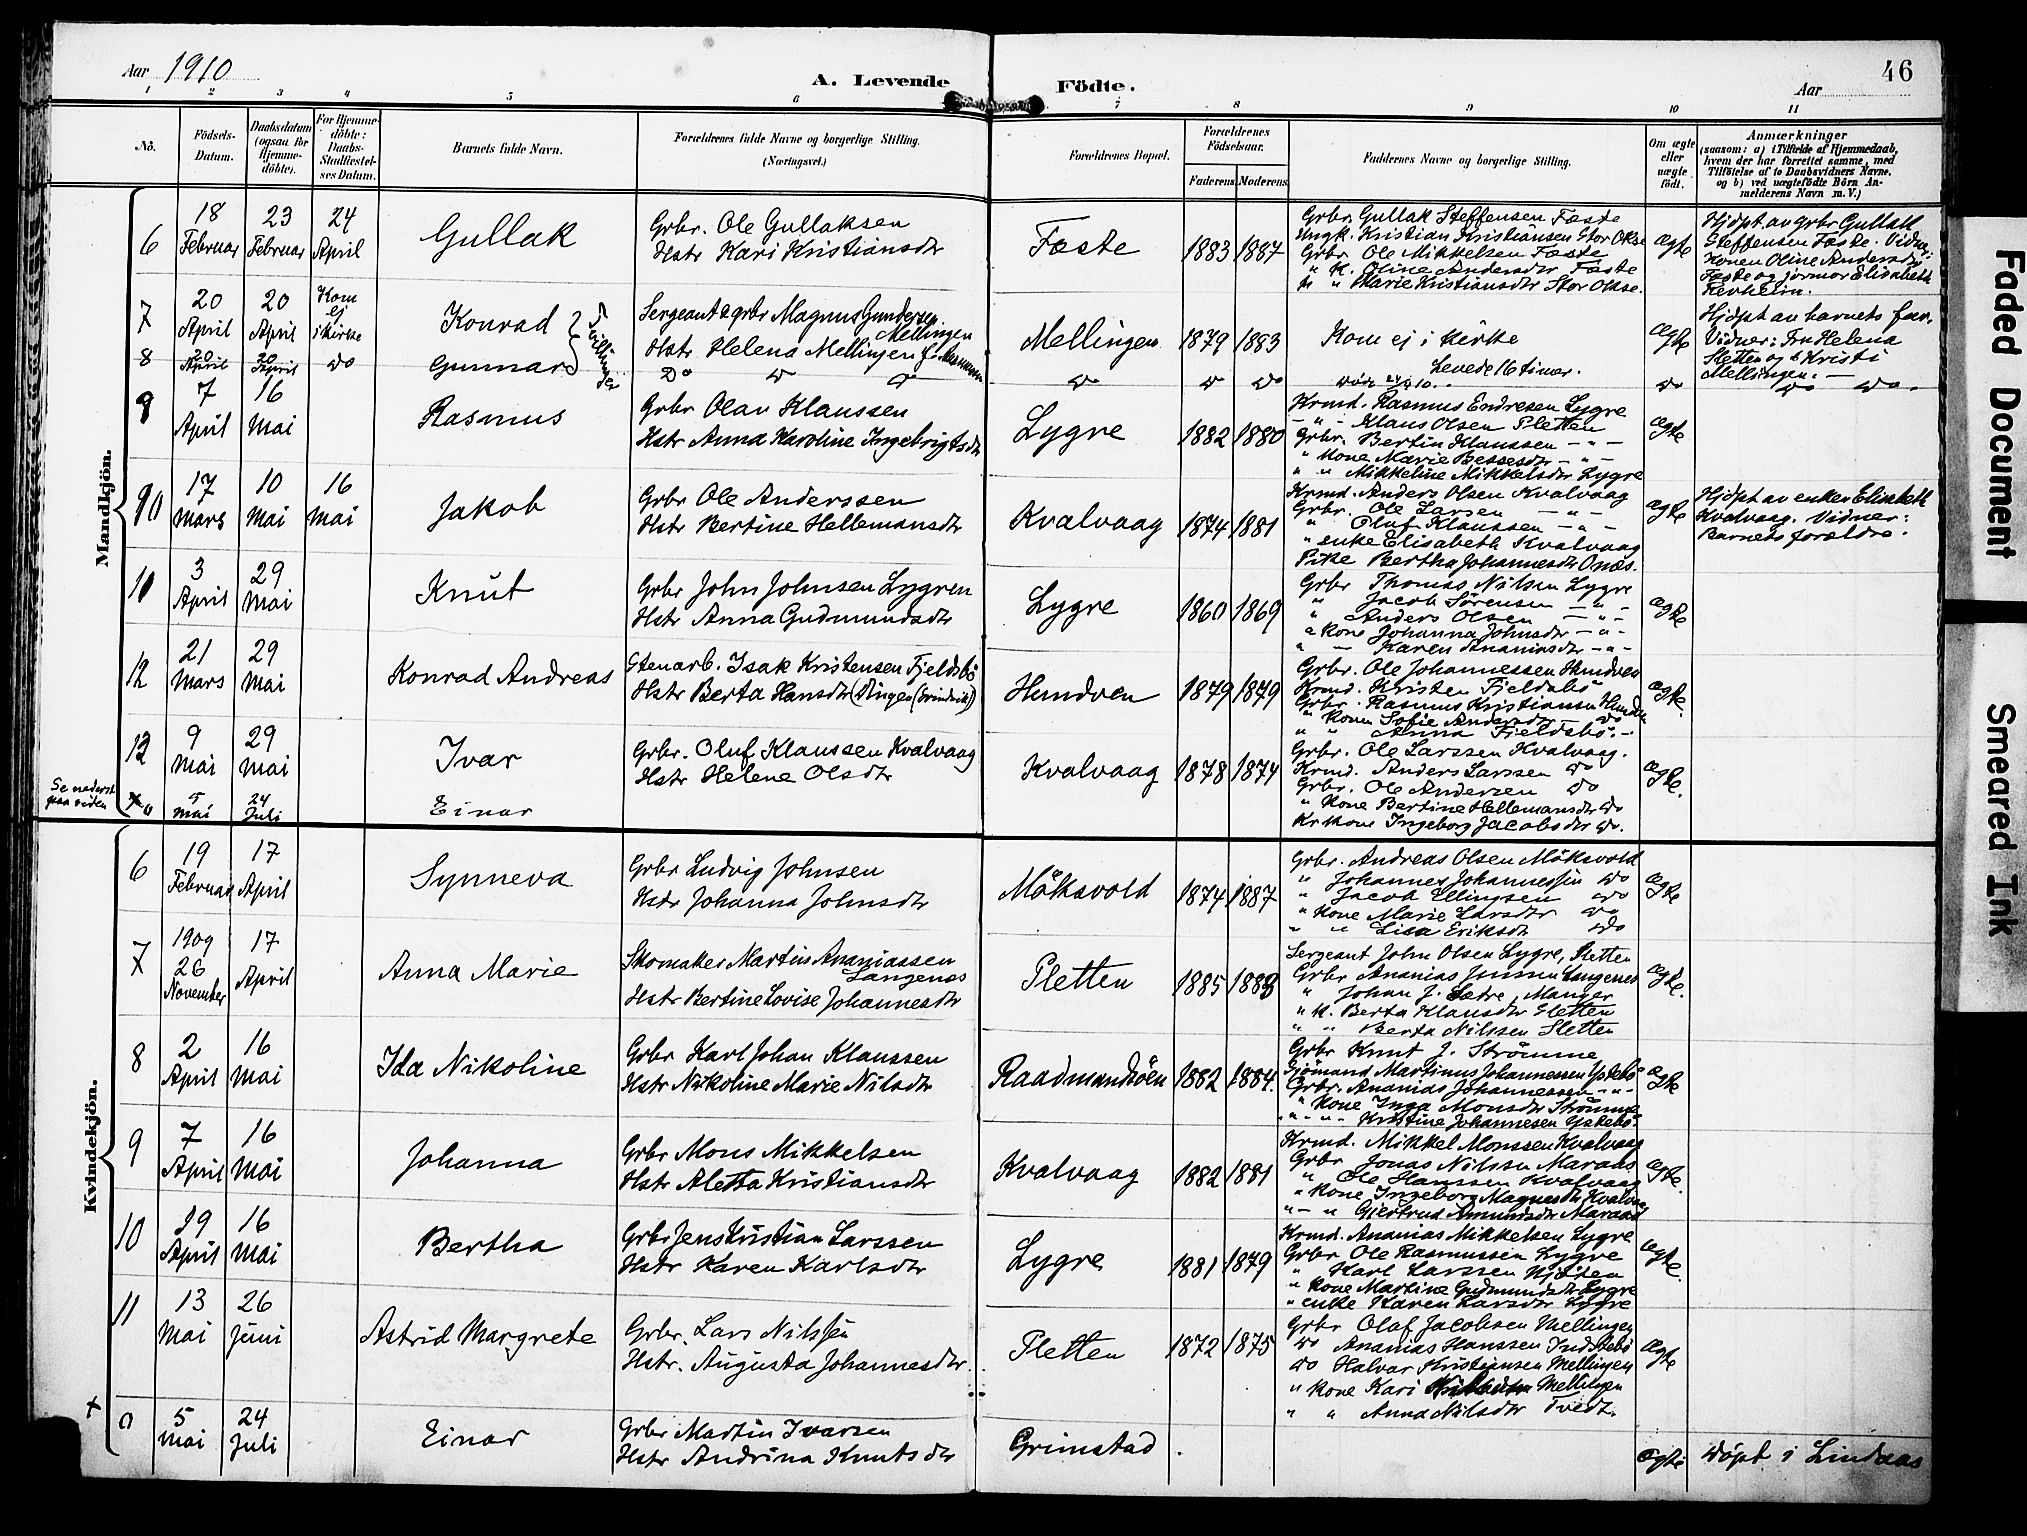 Aar 1910
A. Levende Födte.
Aar
46
1 2 3 4 5 6 7 8 9 10 11
No.
Födsels-Datum.
Daabsdatum (ogsaa for Hjemme-döbte).
For Hjemme-döbte: Daabs-Stadfæstel-ses Datum.
Barnets fulde Navn.
Forældrenes fulde Navne og borgerlige Stilling.
(Næringsvei.)
Forældrenes Bopæl.
Forældrenes Födselsaar.
Faderens Moderens
Faddernes Navne og borgerlige Stilling.
Om ægte eller uægte födt.
Anmærkninger
(saasom: a) i Tilfælde af Hjemmedaab, hvem der har forrettet samme, med Tilföielse af to Daabsvidners Navne, og b) ved uægtefödte Börn An-melderens Navn m. V.)
Mandkjön.
6 18 Februar 23 Februar 24 April Gullak
Grbr. Ole Gullaksen
Hstr Kari Kristiansdtr
Fæste 1883 1887
Grbr. Gullak Steffensen Fæste
Ungk. Kristian Kristiansen Stor Okse
Grbr. Ole Mikkelsen Fæste
" K. Oline Andersdtr Fæste
" " Marie Kristiansdtr Stor Okse.
Ægte
Hjdpt av grbr Gullak
Steffensen Fæste. Vidner:
Konen Oline Andersdtr
Fæste og jormor Elisabeth
7 20 April 20 April Kom ej i kirke Konrad
Tvillinger
Sergeant & grbr Magnus Gundersen Mellingen
Hstr Helena Mellingen
Mellingen 1879 1883
Kom ej i kirke
Ægte
Hjdpt av barnets far.
Vidner: Fru Helena
Sletten og Kristi
Mellingen. —
8 20 April 20 April do Gunnar
Do do do
do do do
Levede 16 timer.
do
do do
9 7 April 16 Mai Rasmus
Grbr Olav Klaussen
Hstr Anna Karoline Ingebrigtsdtr
Lygre 1882 1880
Krmd. Rasmus Endresen Lygre
- " - Klaus Olsen Sletten
Grbr. Bertin Klaussen - " -
" Kone Marie Bessesdtr - " -
" " Mikkeline Mikkelsdtr Lygre
Ægte
10 17 Mars 10 Mai 16 Mai Jakob
Grbr Ole Anderssen
Hstr Bertine Hellemansdtr
Kvalvaag 1874 1881
Krmd. Anders Olsen Kvalvaag
Grbr. Ole Larsen - " -
" Oluf Klaussen - " -
" enke Elisabeth Kvalvaag
Pike Bertha Johannesdtr Onæs.
Ægte
Hjdpt av enken Elisabeth
Kvalvaag. Vidner:
Barnets forældre.
11 3 April 29 Mai Knut
Grbr John Johnsen Lygren
Hstr Anna Gudmundsdtr
Lygre 1860 1869
Grbr Thomas Nilsen Lygre
" Jacob Sørensen - " -
" Anders Olsen - " -
" Kone Johanna Johnsdtr - " -
" — Karen Ananiasdtr - " -
Ægte
12 21 Mars 29 Mai Konrad Andreas
Stenarb. Isak Kristensen Fjeldsbö
Hstr Berta Hansdtr
Hundven 1879 1879
Grbr. Ole Johannessen Hundven
Krmd. Kristen Fjeldsbö
Grbr. Rasmus Kristiansen Hundven
" Konen Sofie Andersdtr — do
" " Anna Fjeldsbö. -
Ægte.
13 9 Mai 29 Mai Ivar
Grbr. Oluf Klaussen Kvalvaag
Hstr Helene Olsdtr
Kvalvaag 1878 1874
Grbr. Ole Larssen Kvalvaag.
Krmd. Anders Larssen do
Grbr. Ole Andersen do
" Kone Bertine Hellemansdtr do
Kr kone Ingeborg Jacobsdtr do.
Ægte.
Se nederst paa siden
0 5 Mai 24 Juli Einar
Kvindekjön.
6 19 Februar 17 April Synneva
Grbr Ludvig Johnsen
Hstr Johanna Johnsdtr
Möksvold 1874 1887
Grbr. Andreas Olsen Möksvold
" Johannes Johannessen do
" Jacob Ellingsen do
" Kone Marie Larsdtr do
" " Lisa Eriksdtr do
Ægte
7 1909 26 November 17 April Anna Marie
Skomaker Martin Ananiassen Langenes
Hstr Bertine Lovise Johannesdtr
Sletten 1885 1888
Sergeant John Olsen Lygre, Sletten
Grbr Ananias Jensen Langenes
" Johan J. Sædre, Manger
" K. Berta Klausdtr Sletten
" " Berta Nilssen Sletten
Ægte.
8 2 April 16 Mai Ida Nikoline
Grbr Karl Johan Klaussen
Hstr Nikoline Marie Nilsdtr
Raadmandsöen 1882 1884.
Grbr Knut J. Strömme
Sjömand Martinus Johannessen Ystebö
Grbr. Ananias Johannessen - " -
" Kone Inga Monsdtr Strömme
" - " - Kristine Johannesen Ystebö.
Ægte
9 7 April 16 Mai Johanna
Grbr Mons Mikkelsen
Hstr Aletta Kristiansdtr
Kvalvaag 1882 1881
Krmd. Mikkel Monssen Kvalvaag
Grbr Jonas Nilssen Maraas
" Ole Hanssen Kvalvaag
" Kone Ingeborg Magnesdtr Kvalvaag
" - " Gjertrud Amundsdtr Maraas
Ægte.
10 29 April 16 Mai Bertha
Grbr Jens Kristian Larssen
Hstr Karen Karlsdtr
Lygre 1881 1879
Krmd. Ananias Mikkelsen Lygre
Grbr Ole Rasmussen Lygre
" Karl Larssen
" Kone Martine Gudmundsdtr Lygre
" enke Karen Larsdtr Lygre
Ægte.
11 13 Mai 26 Juni Astrid Margrete
Grbr. Lars Nilssen
Hstr. Augusta Johannesdtr.
Sletten 1872 1875
Grbr Olaf Jacobsen Mellingen
do Ananias Hanssen Indstebö
do Halvar Kristiansen Mellingen
" Kone Kari Mellingen
" " Anna Nilsdtr Tvedt.
Ægte
0 5 Mai 24 Juli Einar
Grbr Martin Ivarsen
Hstr Andrina Knutsdtr
Grimstad.
Ægte
Döpt i Lindaas
Faded Document
Smeared Ink